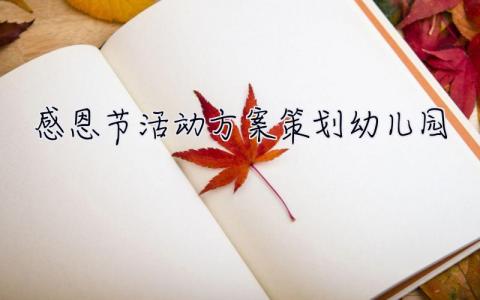 感恩节活动方案策划幼儿园